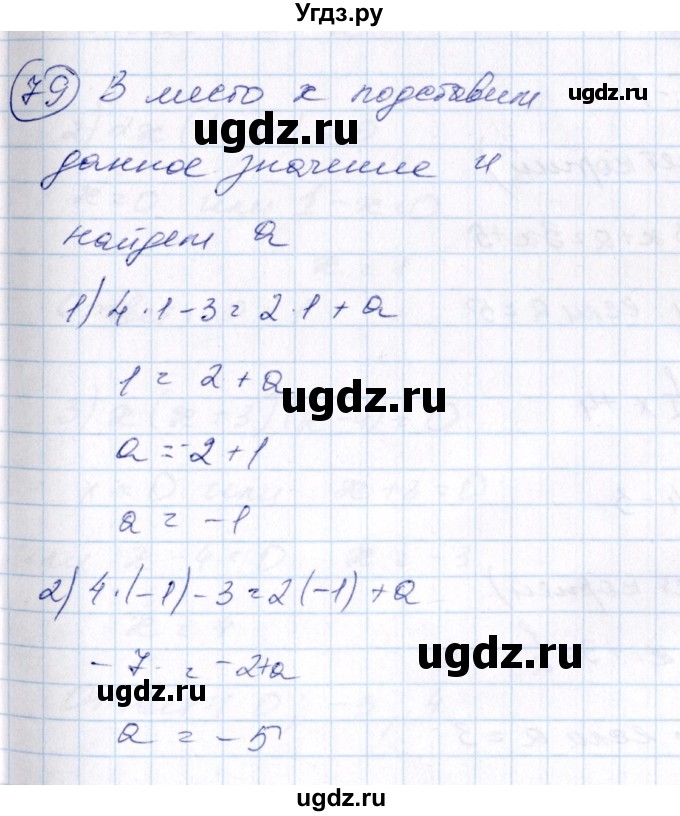 Угдз.ру
79 В место x подставим
ugdz.ru
ugdz.ru
данное значение и
найдем a
1) 4·1-3=2·1+a
1=2+a
ugdz.ru
a=-2+1
a=-1
2) 4·(-1)-3=2(-1)+a
ugdz.ru
-7=-2+a
ugdz.ru
a=-5
ugdz.ru